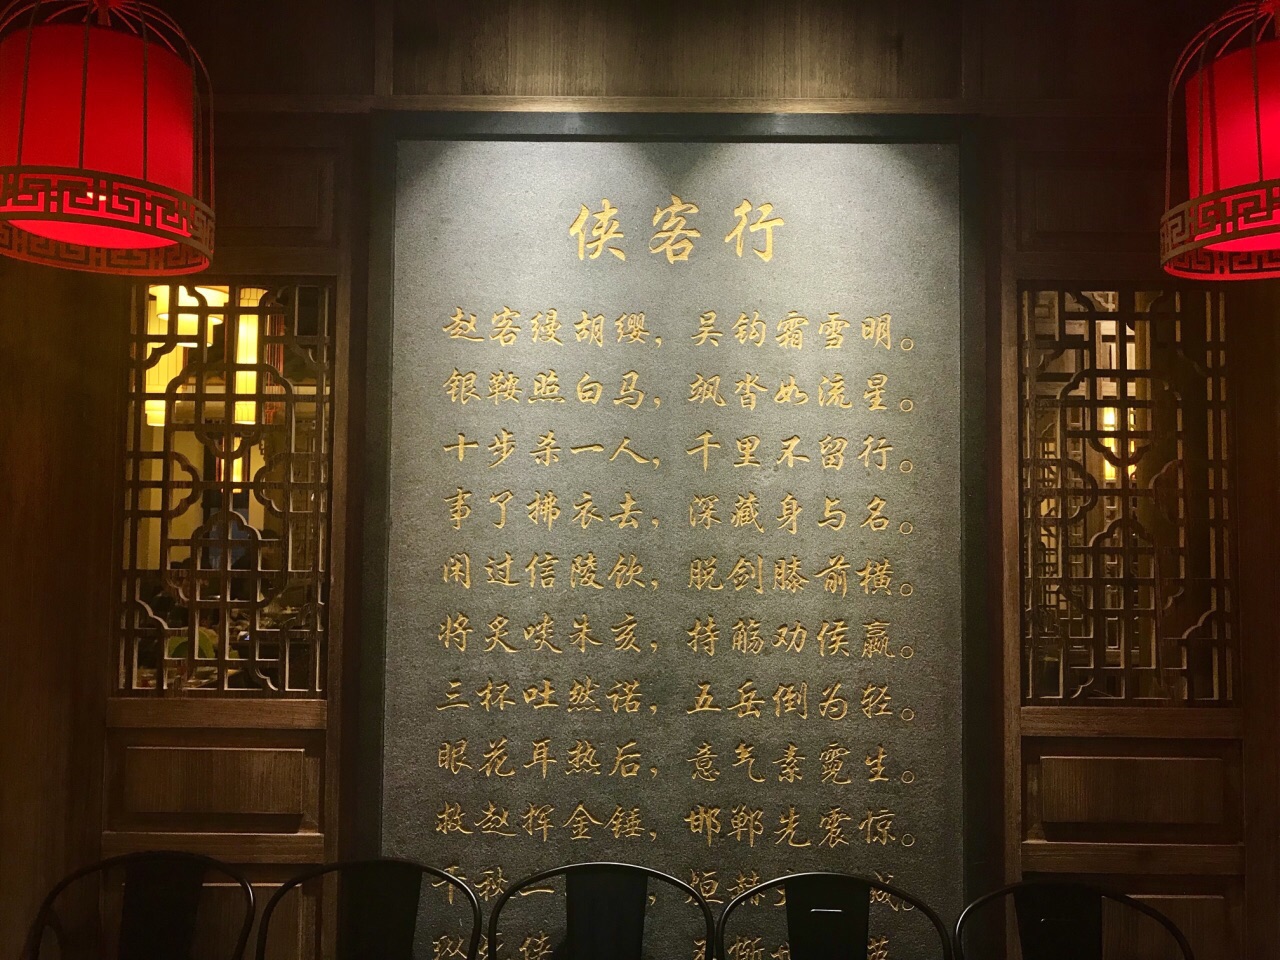 侠客行
赵客缦胡缨，吴钩霜雪明。
银鞍照白马，飒沓如流星。
十步杀一人，千里不留行。
事了拂衣去，深藏身与名。
闲过信陵饮，脱剑膝前横。
将炙啖朱亥，持觞劝侯嬴。
三杯吐然诺，五岳倒为轻。
眼花耳热后，意气素霓生。
救赵挥金锤，邯郸先震惊。
千秋二，烜赫城。
纵死侠